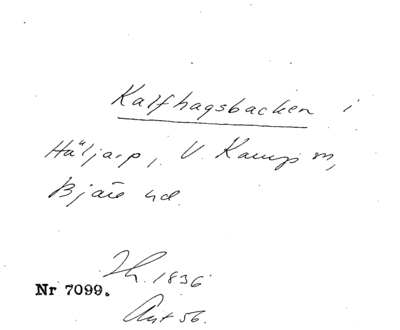 Kalfhagsbacken i
Häljarp, V. Karup sn,
Bjäre hd.
Th. 1836
Nr 7099.
Ant 56.